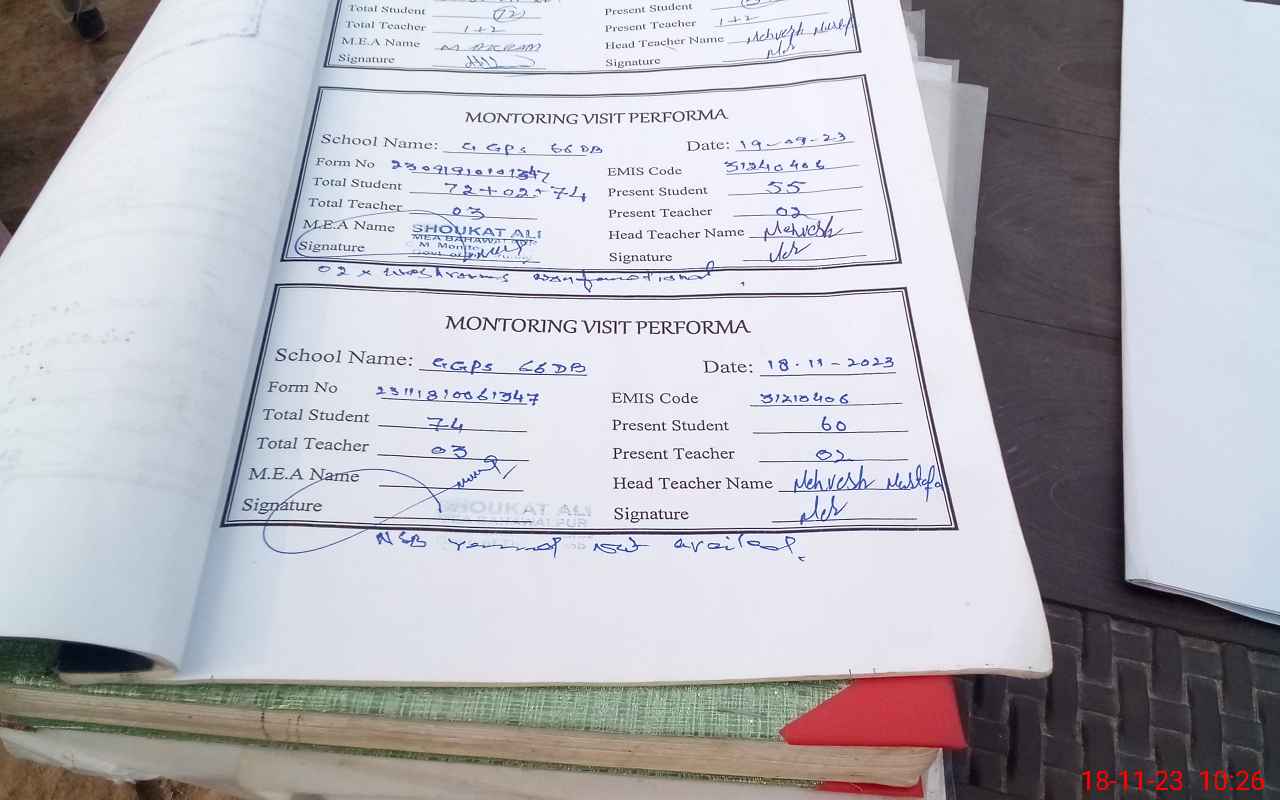 Total Student 72 Present Student
Total Teacher 1+2 Present Teacher 1+2
M.E.A Name M AKRAM Head Teacher Name Mehvesh Mustafa
Signature Signature
MONTORING VISIT PERFORMA
School Name: GGPS 66 DB Date: 19-09-23
Form No EMIS Code 31240406
Total Student 72+02+74 Present Student 55
Total Teacher 03 Present Teacher 02
M.E.A Name SHOUKAT ALI Head Teacher Name Mehvesh
MEA BAHAWALPUR
Signature Signature
02 x washrooms nonfunctional.
MONTORING VISIT PERFORMA
School Name: GGPS 66 DB Date: 18-11-2023
Form No 23111810061347 EMIS Code 31210406
Total Student 74 Present Student 60
Total Teacher 03 Present Teacher 02
M.E.A Name Head Teacher Name Mehvesh Mustafa
Signature SHOUKAT ALI Signature
MEA BAHAWALPUR
NSB not availed.
18-11-23 10:26